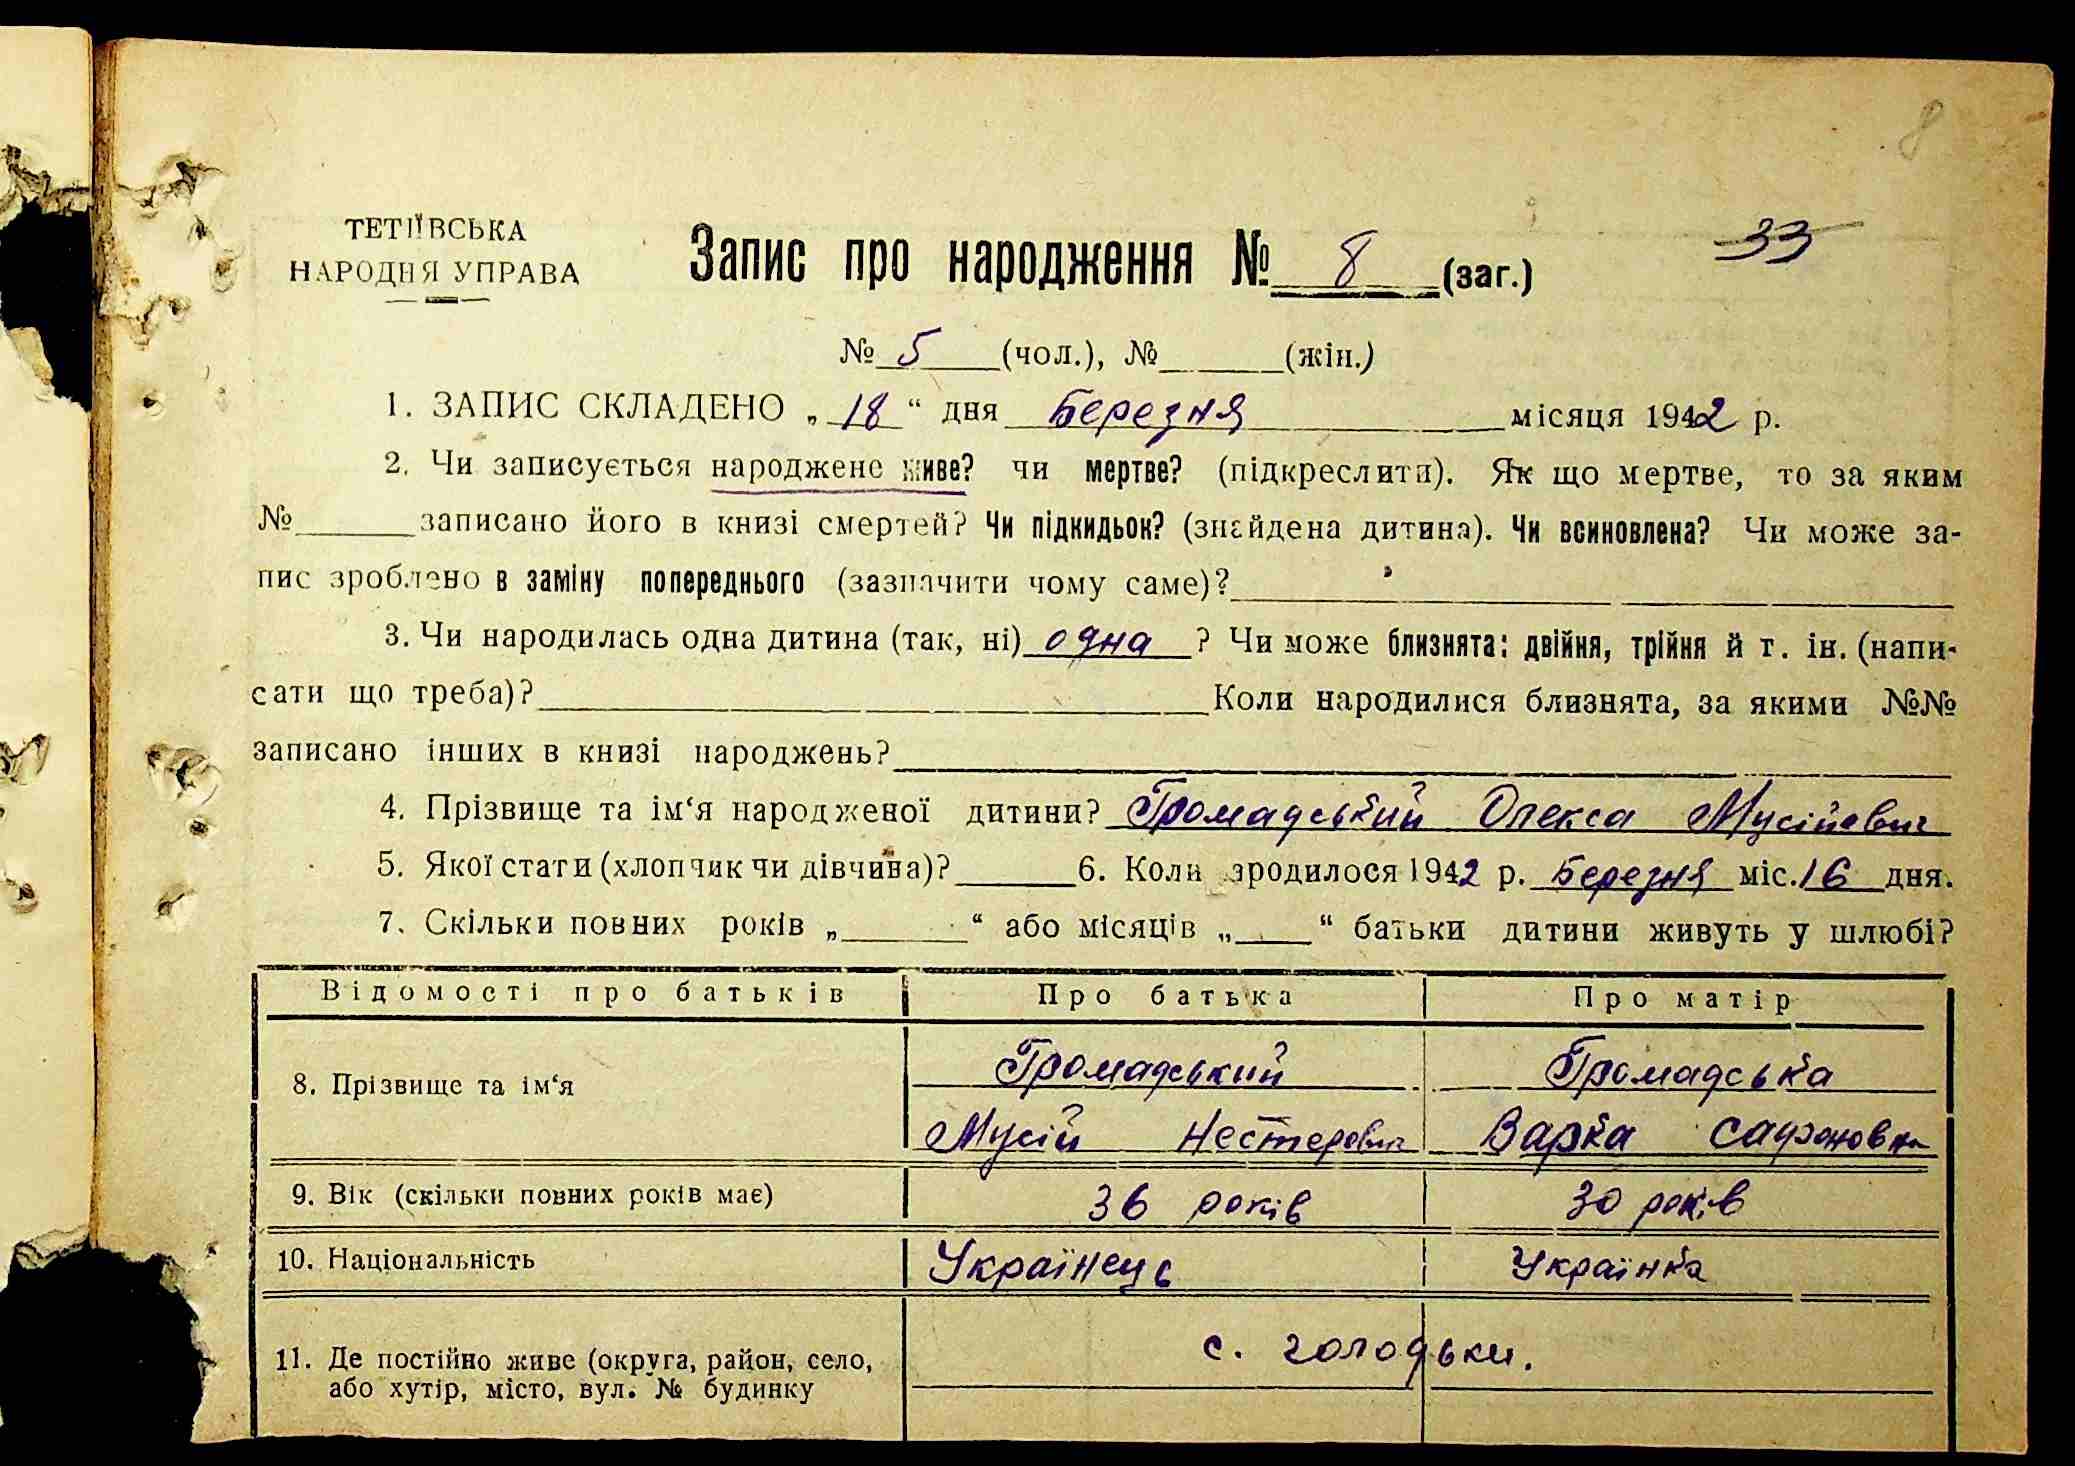 8
ТЕТІЇВСЬКА
НАРОДНЯ УПРАВА
33
Запис про народження № 8 (заг.)
№ 5 (чол.), № (жін.)
1. ЗАПИС СКЛАДЕНО „18“ дня Березня місяця 1942 р.
2. Чи записується народжене живе? чи мертве? (підкреслити). Як що мертве, то за яким
№ записано його в книзі смертей? Чи підкидьок? (знайдена дитина). Чи всиновлена? Чи може за-
пис зроблено в заміну попереднього (зазначити чому саме)?
3. Чи народилась одна дитина (так, ні) одна ? Чи може близнята: двійня, трійня й т. ін. (напи-
сати що треба)? Коли народилися близнята, за якими №№
записано інших в книзі народжень?
4. Прізвище та ім‘я народженої дитини? Громадський Олекса Мусійович
5. Якої стати (хлопчик чи дівчина)? 6. Коли зродилося 1942 р. Березня міс. 16 дня.
7. Скільки повних років „ “ або місяців „ “ батьки дитини живуть у шлюбі?
Відомості про батьків Про батька Про матір
8. Прізвище та ім‘я Громадський Громадська
Мусій Нестерович Варка Сафоновна
9. Вік (скільки повних років має) 36 років 30 років
10. Національність Українець Українка
11. Де постійно живе (округа, район, село, с. Голодьки.
або хутір, місто, вул. № будинку